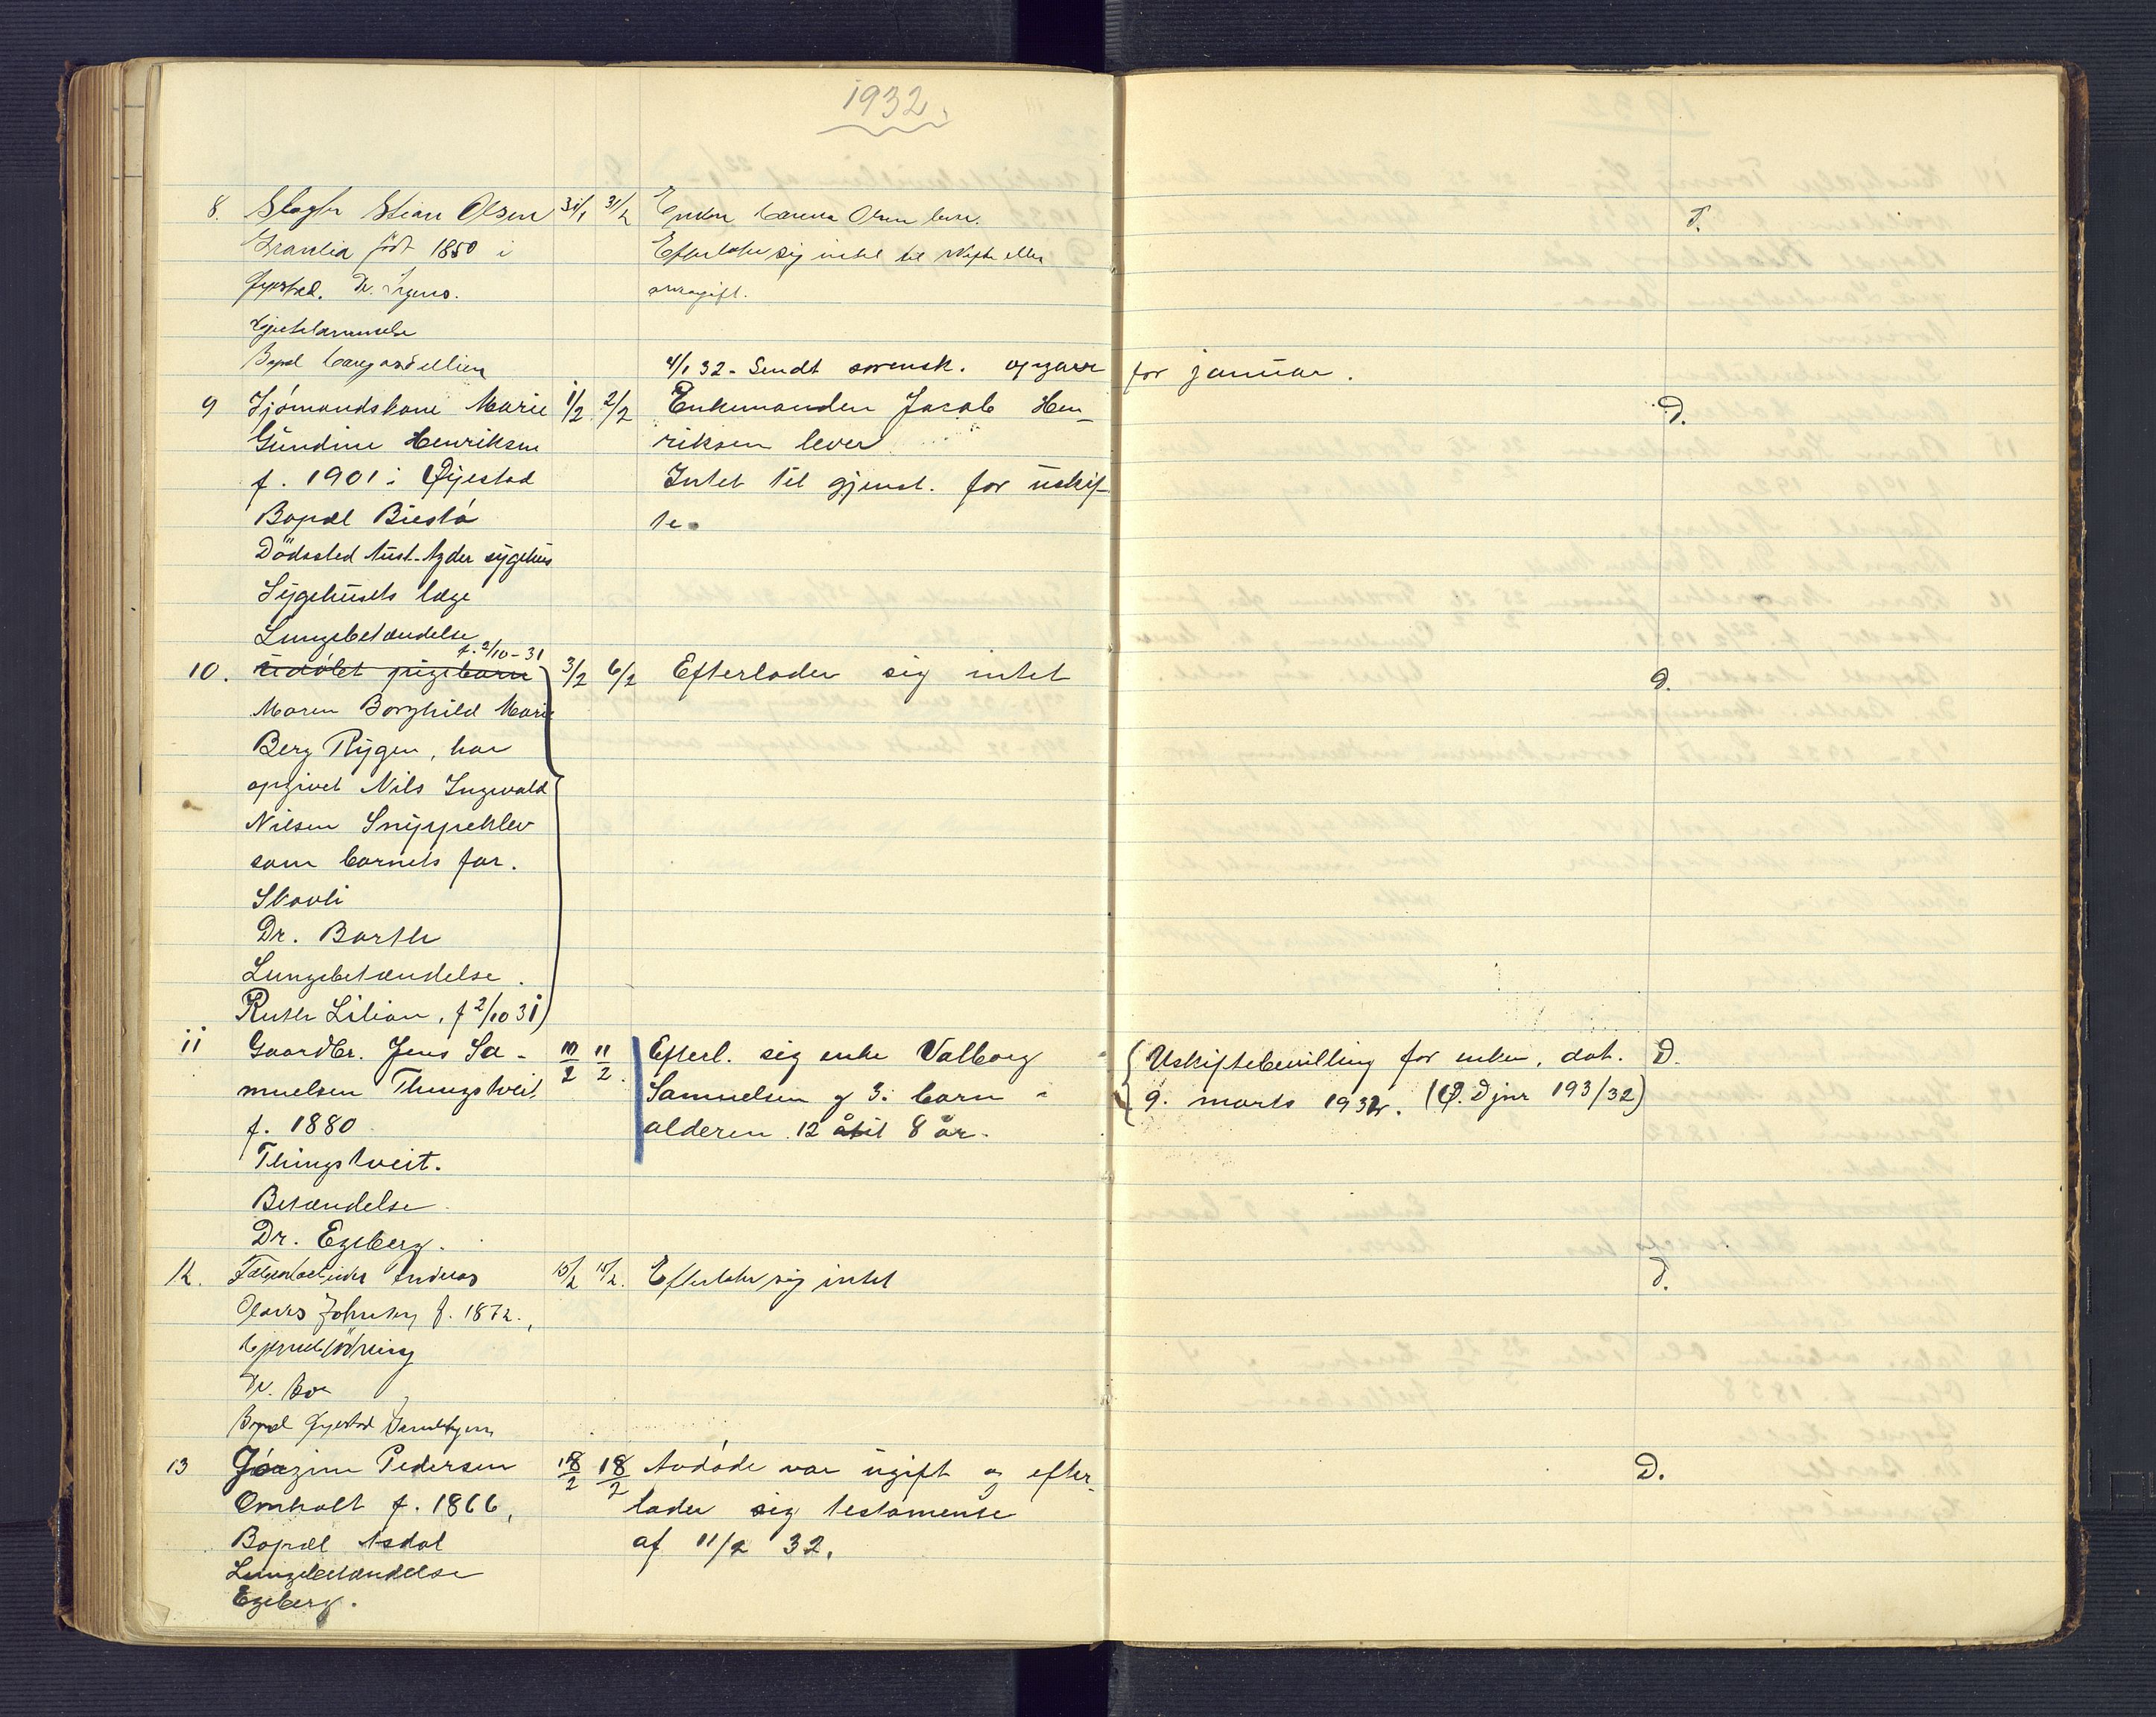 1932.
8. Slagter Stian Olsen 31/1 31/1 Enken Carena Olsen lever. D.
Granlia født 1850 i Efterlater sig intet til skifte eller
Øyestad. Dr. arvegift.
Hjertelammelse
Bopæl
4/1 32 - Sendt sorensk. opgave for januar.
9 Sjómandskone Marie 1/2 2/2 Enkemanden Jacob Hen- D.
Gundine Henriksen riksen lever
f. 1901 i Øyestad Intet til gjenst. for uskif-
Bopæl Biestó te.
Dödssted Aust-Agder sygehus
Sygehusets læge
Lungebetændelse
f. 2/10-31
10. Udøbt pigebarn 3/2 6/2 Efterlader sig intet D.
Maren Borghild Marie
Berg Rygen, har
opgivet Nils Ingwald
Nilsen Snyppeklev
som barnets far.
Skovli
Dr. Barth
Lungebetændelse.
Ruth Lilian, f 2/10 31)
11 Gaardbr. Jens Sa- 10/2 11/2. Efterl. sig enke Valborg Uskiftebevilling for enken, dat. D.
muelsen Thingstveit Samuelsen og 3 barn i 9. marts 1932. (P. D jnr 193/32)
f. 1880 alderen 12 til 8 år.
Thingstveit.
Betændelse.
Dr. Egeberg.
12. Anders 15/2 15/2. Efterlater sig intet D.
Olaves Johnsen f. 1872.,
Hjerneblødning
Dr.
Bopæl Øyestad
13 Jórgine Pedersen 18/2 18/2 Avdóde var ugift og efter- D.
Omholt f. 1866, lader sig testamente
Bopæl Asdal af 11/2 32.
Lungebetændelse
Egeberg.